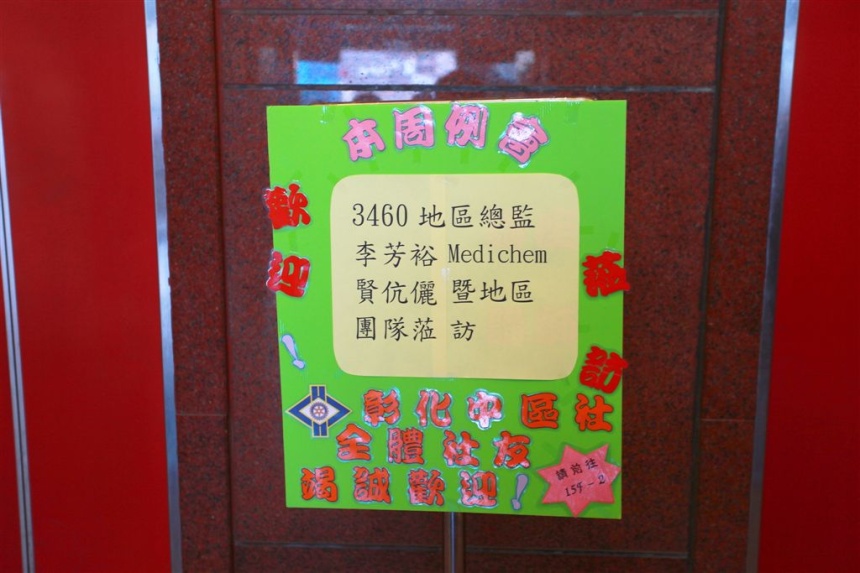 本周例會
歡迎
蒞訪
!
3460 地區總監
李芳裕 Medichem
賢伉儷 暨地區
團隊蒞 訪
彰化中區社
全體社友
竭誠歡迎!
請前往